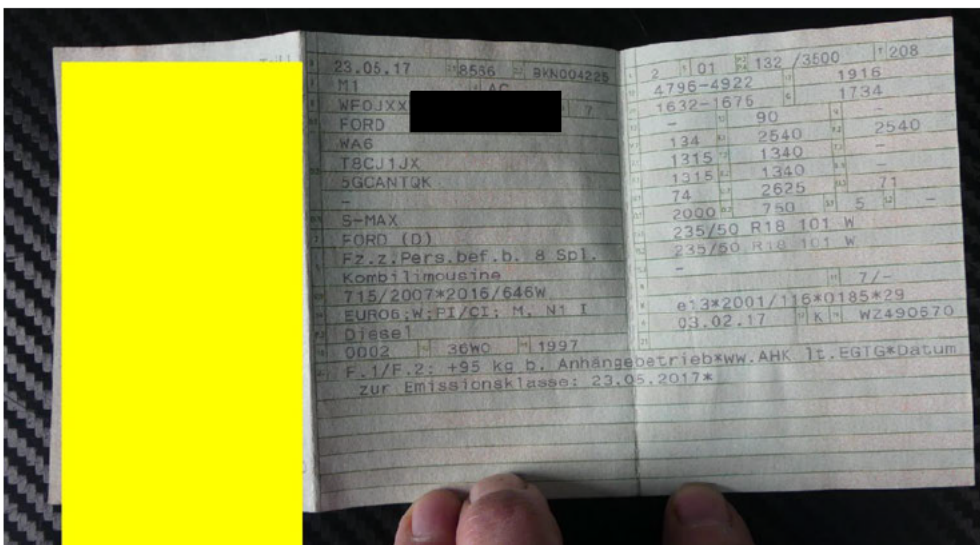 23.05.17 8566 BKN004225
M1 AC
WF0JXX 7
FORD
WA6
T8CJ1JX
5GCANTQK
-
S-MAX
FORD (D)
Fz.z.Pers.bef.b. 8 Spl.
Kombilimousine
715/2007*2016/646W
EURO6;W;PI/CI; M, N1 I
Diesel
0002 36W0 1997
F.1/F.2: +95 kg b. Anhängebetrieb*ww.AHK lt.EGTG*Datum
zur Emissionsklasse: 23.05.2017*
2 01 132 /3500 208
4796-4922 1916
1632-1676 1734
- 90 -
134 2540 2540
1315 1340 -
1315 1340 -
74 2625 71
2000 750 5 -
235/50 R18 101 W
235/50 R18 101 W
-
7/-
e13*2001/116*0185*29
03.02.17 K WZ490670